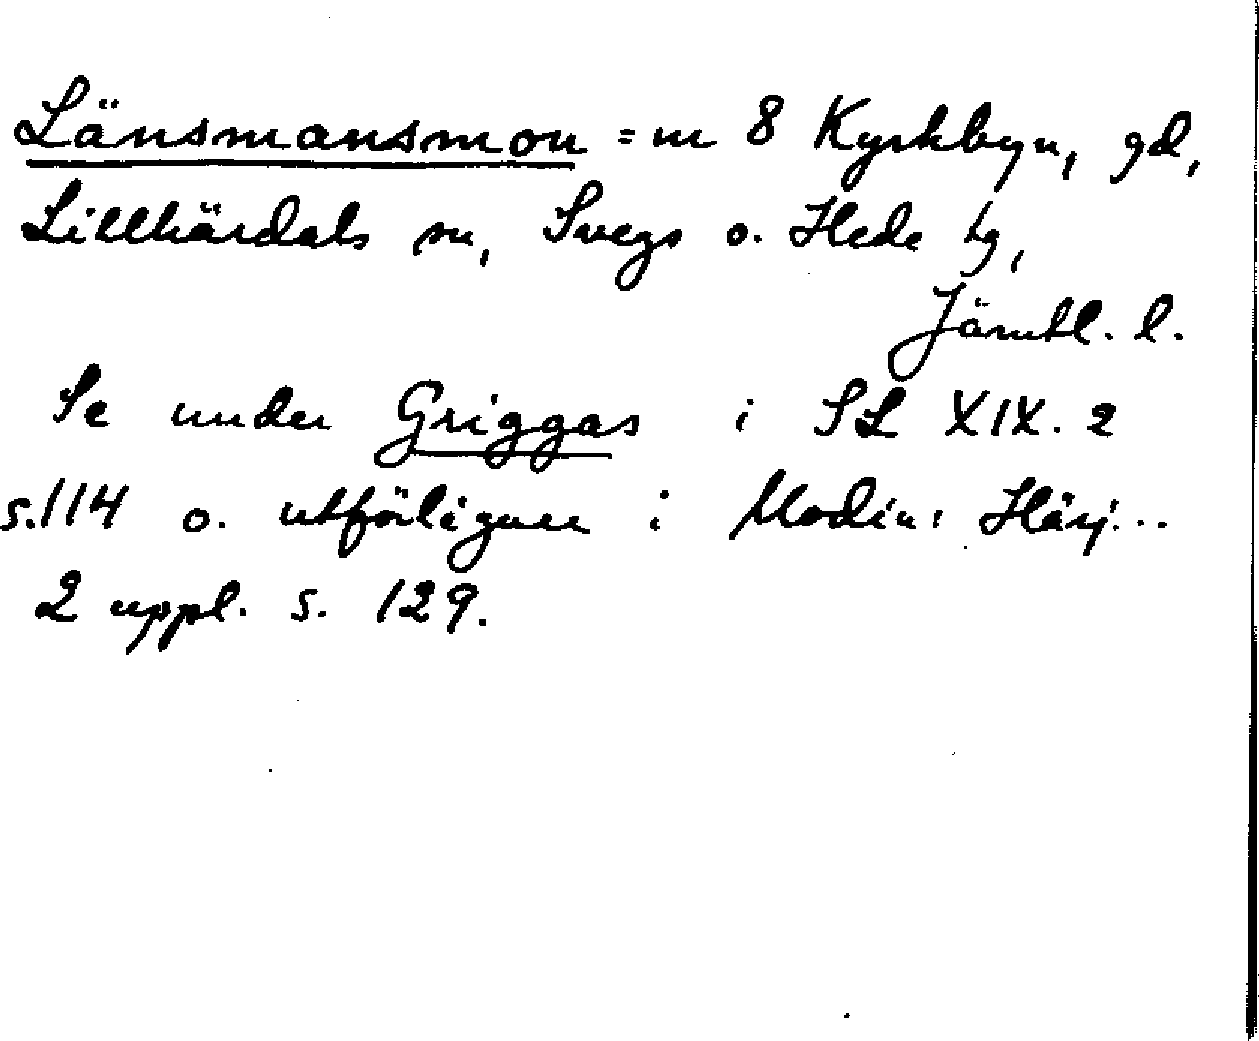 Länsmansmon = nr 8 Kyrkbyn, gd,
Lillhärdals sn, Svegs o. Hede tg,
Jämtl. l.
Se under Griggas i SL XIX. 2
s. 114 o. utförligare i Modin: Härj...
2 uppl. s. 129.